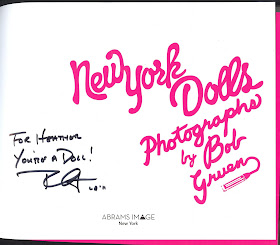 New York
Dolls
Photographs
by Bob
Gruen
For Heather
You're a Doll!
ABRAMS IMAGE
New York